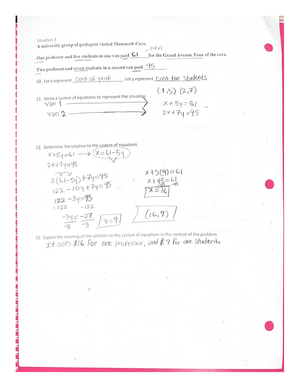 Situation 3
A university group of geologists visited Mammoth Cave.
One professor and five students in one van paid 61 for the Grand Avenue Tour of the cave.
Two professors and seven students in a second van paid 95.
10. Let x represent cost of prof. Let y represent cost for students
(1,5) (2,7)
11. Write a system of equations to represent this situation.
Van 1 x+5y=61
Van 2 2x+7y=95
12. Determine the solution to the system of equations.
x+5y=61 x=61-5y
2x+7y=95
2(61-5y)+7y=95
122-10y+7y=95
122-3y=95
-122 -122
-3y=-27
-3 -3 y=9
x+5(9)=61
x+45=61
-45 -45
x=16
(16,9)
13. Explain the meaning of the solution to this system of equations in the context of the problem.
It costs $16 for one professor, and $9 for one student.